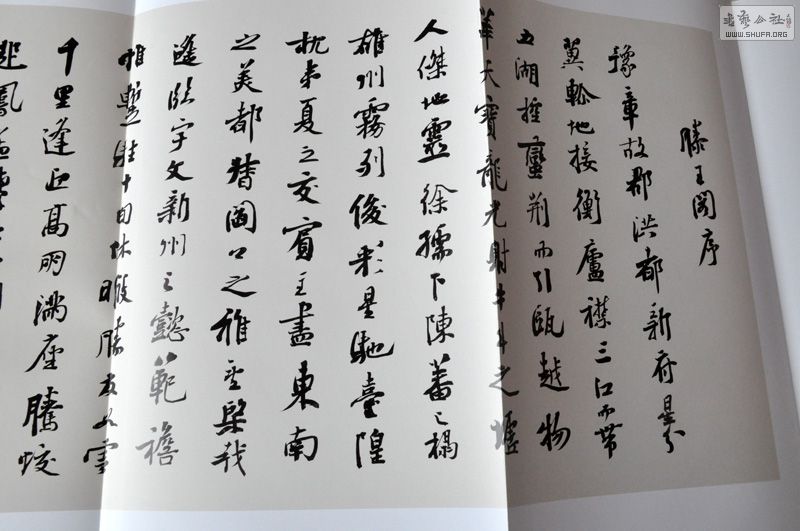 滕王閣序
豫章故郡洪都新府星分
翼軫地接衡廬襟三江而帶
五湖控蠻荊而引甌越物
華天寶龍光射牛斗之墟
人傑地靈徐孺下陳蕃之榻
雄州霧列俊彩星馳臺隍
枕夷夏之交賓主盡東南
之美都督閻公之雅望棨戟
遙臨宇文新州之懿範襜
帷暫駐十旬休暇勝友如雲
千里逢迎高朋滿座騰蛟
起鳳孟學士
书艺公社
WWW.SHUFA.ORG